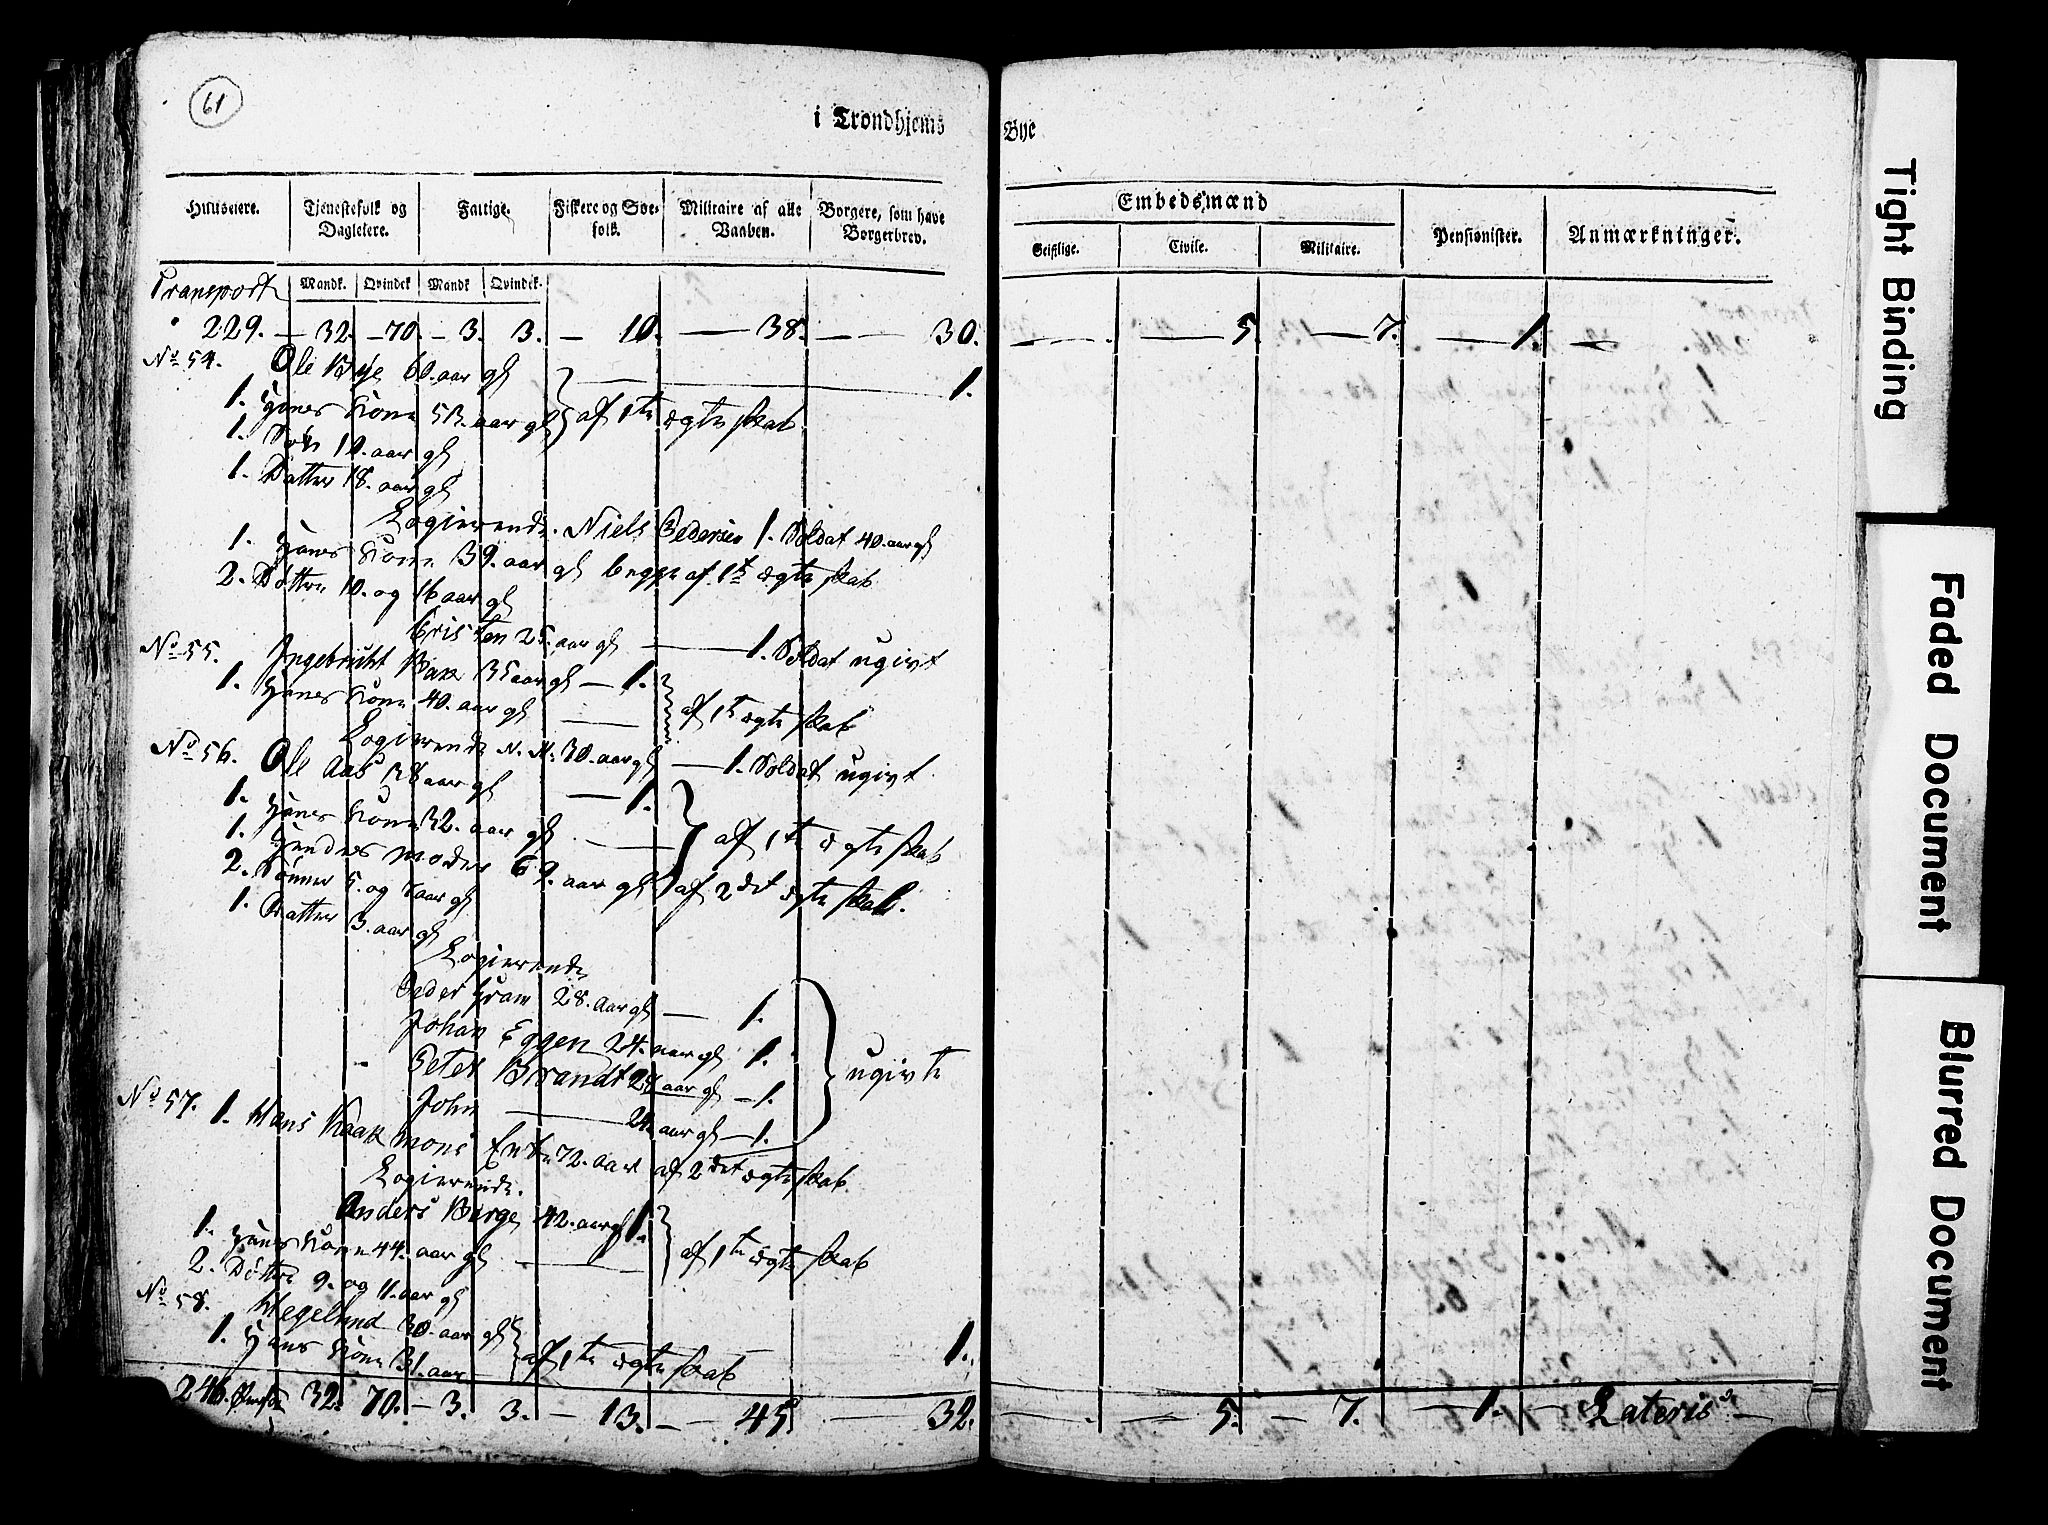 61
i Trondhjems Bye
Huuseiere. Tjenestefolk og Dagleiere. Fattige. Fiskere og Søefolk. Militaire af alle Vaaben. Borgere, som have Borgerbrev. Embedsmænd Pensionister. Anmærkninger.
Geistlige. Civile. Militaire.
Mandk. Qvindek Mandk Qvindek.
Transport
229. – 32. – 70. – 3. 3. – 10. – 38. – 30. – 5. – 7. – 1. –
No 54. Ole Bye 60. aar gl – 1.
1. Hanes Kone 53. aar gl } af 1te ægteskab
1. Søn 10. aar gl
1. Datter 18. aar gl
Logierende. Niels Pedersen 1. Soldat 40. aar gl
1. Hanes Kone 39. aar gl begge af 1te ægteskab
2. Døttre 10. og 16 aar gl
Cristen 25. aar gl – 1. Soldat ugivt
No 55. Ingebricht 35 aar gl – 1.
1. Hanes Kone 40. aar gl – } af 1te ægteskab
Logierende N. N. 30. aar gl – 1. Soldat ugivt
No 56. Ole Aas 38 aar gl – 1.
1. Hanes Kone 32. aar gl – } af 1te ægteskab
1. Hendes moder 69. aar gl af 2det ægteskab.
2. Sønner 5. og aar gl
1. Datter 3. aar gl
Logierende
Peder Gram 28. Aar gl – 1.
Johan Eggen 24. aar gl 1. } ugivte
Peter Brandt 28 aar gl – 1.
John – 24. aar gl – 1.
No 57. 1. Hans Enke 72. aar af 2det ægteskab.
Logierende.
Anders Berge 42. aar gl 1.
1. Hanes Kone 44. aar gl – } af 1te ægteskab
2. Døttre 9. og 11. aar gl
No 58. Hegelund 30. aar gl – 1.
1. Hans Kone 31. aar } af 1te ægteskab
246. 32. 70. – 3. 3. – 13. – 45. – 32. – 5. – 7. – 1. – Lateris –
Tight Binding
Faded Document
Blurred Document